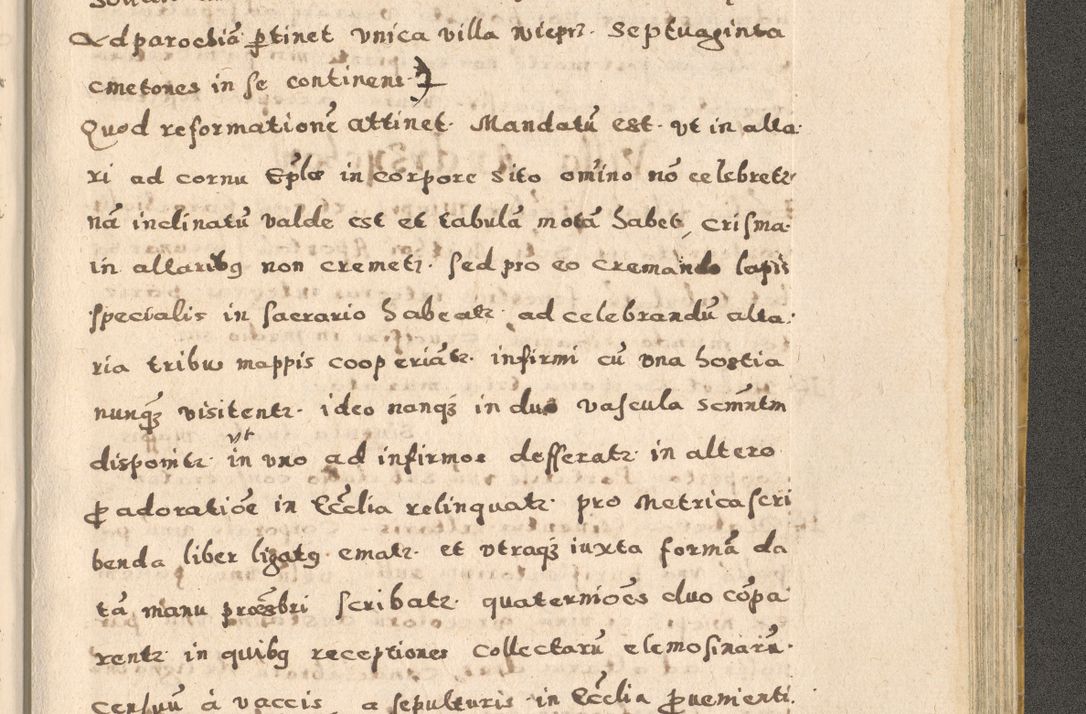 Ad parochiã ꝑtinet vnica villa wieprz. Septuaginta
cmetones in se continens.
Quod reformationẽ attinet. Mandatũ est. vt in alta
ri ad cornu Ep̃lae in corpore sito om̃ino nõ celebretz.
nã inclinatũ valde est et tabulã motã habet, crisma
in altaribꝯ non cremetz. sed pro eo cremando lapis
specialis in sacrario habeatz. ad celebrandũ alta.
ria tribus mappis cooperiãtz. infirmi cũ vna hostia
nunqꝫ visitentz. ideo nanqꝫ in duo vascula scm̃ntm
disponitz. vt in vno ad infirmos defferatz. in altero
ꝑ adoratiõe in Ec̃clia relinquatz. pro Metrica scri
benda liber ligatꝯ ematz. et vtraqꝫ iuxta formã da
tã manu præsbri scribatz. quaternioẽs duo cõpa
rentz. in quibꝯ receptiones collectarũ elemosinarũ.
censuũ à vaccis a sepulturis in Ec̃clia ꝓuenienti.